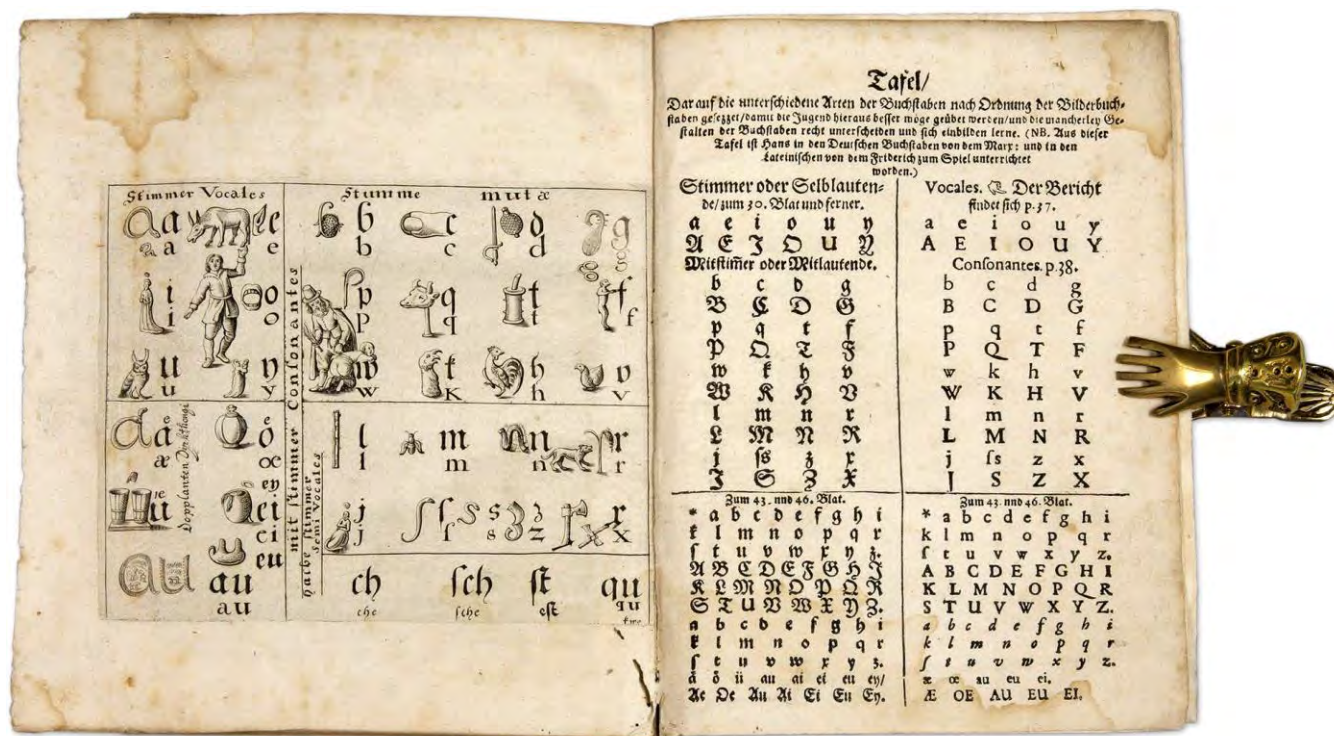 Stimmer Vocales
Stumme mutæ
a e
a e
b c d g
b c d g
i o
i o
p q t f
p q t f
u y
u y
w k h v
w K h v
mit stimmer Consonantes
æ oe
Dopplanten
ei
ei
eu
au
au
halbe stimmer
Semi Vocales
l m n r
l m n r
j ſ s z x
j ſ s z x
ch ſch ſt qu
che ſche eſt qu
Tafel/
Darauf die unterschiedene Arten der Buchſtaben nach Ordnung der Bilderbuch-
ſtaben geſezzet/damit die Jugend hieraus beſſer möge geübet werden/und die mancherley Ge-
ſtalten der Buchſtaben recht unterſcheiden und ſich einbilden lerne. (NB. Aus dieſer
Tafel iſt Hans in den Deutſchen Buchſtaben von dem Marx: und in den
Lateiniſchen von dem Friderich zum Spiel unterrichtet
worden.)
Stimmer oder Selblauten-
de/zum 30. Blat und ferner.
a e i o u y
A E I O U Y
Mitſtim̃er oder Mitlautende.
b c d g
B C D G
p q t f
P Q T F
w k h v
W K H V
l m n r
L M N R
j ſs z x
J S Z X
Zum 43. nnd 46. Blat.
* a b c d e f g h i
k l m n o p q r
ſ t u v w x y z.
A B C D E F G H I
K L M N O P Q R
S T U V W X Y Z.
a b c d e f g h i
k l m n o p q r
ſ t u v w x y z.
ä ö ü au ai ei eu ey/
Ae Oe Au Ai Ei Eu Ey.
Vocales. Der Bericht
findet ſich p. 37.
a e i o u y
A E I O U Y
Conſonantes. p. 38.
b c d g
B C D G
p q t f
P Q T F
w k h v
W K H V
l m n r
L M N R
j ſs z x
J S Z X
Zum 43. nnd 46. Blat.
* a b c d e f g h i
k l m n o p q r
ſ t u v w x y z.
A B C D E F G H I
K L M N O P Q R
S T U V W X Y Z.
a b c d e f g h i
k l m n o p q r
ſ t u v w x y z.
æ œ au eu ei.
Æ OE AU EU EI.